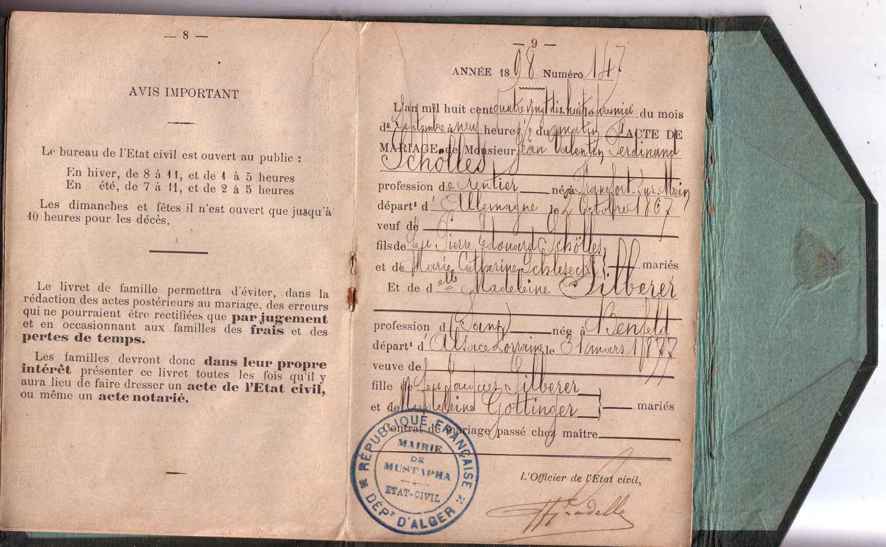 — 8 —
AVIS IMPORTANT
Le bureau de l'Etat civil est ouvert au public :
En hiver, de 8 à 11, et de 1 à 5 heures
En été, de 7 à 11, et de 2 à 5 heures
Les dimanches et fêtes il n'est ouvert que jusqu'à
10 heures pour les décès.
Le livret de famille permettra d'éviter, dans la
rédaction des actes postérieurs au mariage, des erreurs
qui ne pourraient être rectifiées que par jugement
et en occasionnant aux familles des frais et des
pertes de temps.
Les familles devront donc dans leur propre
intérêt présenter ce livret toutes les fois qu'il y
aura lieu de faire dresser un acte de l'Etat civil,
ou même un acte notarié.
— 9 —
ANNÉE 1898 Numéro 147
L'an mil huit cent quatre vingt dix huit du mois
de Septembre à neuf heures du matin L'ACTE DE
MARIAGE de Monsieur Jean Valentin Ferdinand
Schölles
profession de Rentier né à Francfort sur Mein
départt d'Allemagne le 2 Octobre 1867
veuf de
fils de Pierre Edouard Schölles
et de Marie Catharine mariés
Et de delle Madeleine Silberer
profession d Sans née à Benfeld
départt d'Alsace Lorraine le 31 1877
veuve de
fille de Jacques Silberer
et de Gottinger mariés
Contrat de mariage passé chez maître
L'Officier de l'Etat civil,
RÉPUBLIQUE FRANÇAISE
MAIRIE
DE
MUSTAPHA
ETAT-CIVIL
DÉPT D'ALGER